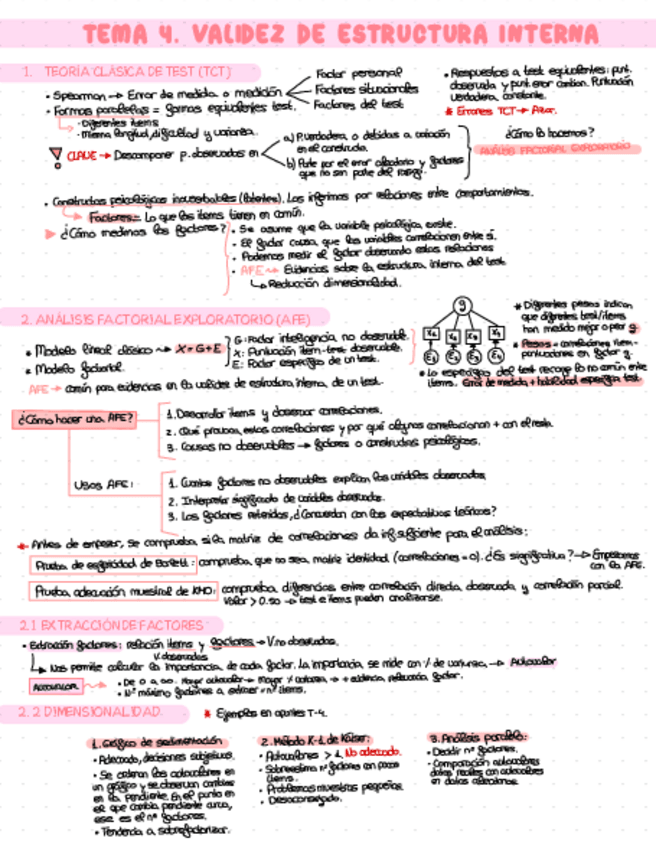 TEMA 4. VALIDEZ DE ESTRUCTURA INTERNA
1. TEORÍA CLÁSICA DE TEST (TCT)
• Spearman → Error de medida o medición
Factor personal
Factores situacionales
Factores del test
• Formas paralelas = formas equivalentes test.
• Diferentes ítems
• Misma longitud, dificultad y varianza.
• Respuestas a test equivalentes: punt.
observada y punt. error cambian. Puntuación
verdadera, constante.
* Errores TCT → Azar.
CLAVE → Descomponer p. observadas en
a) P. verdadera, o debidas a variación
en el constructo.
b) Parte por el error aleatorio y factores
que no son parte del rasgo.
¿Cómo lo hacemos?
ANÁLISIS FACTORIAL EXPLORATORIO
• Constructos psicológicos inobservables (latentes). Los inferimos por relaciones entre comportamientos.
Factores = Lo que los ítems tienen en común.
¿Cómo medimos los factores?
• Se asume que la variable psicológica existe.
• El factor causa, que las variables correlacionen entre sí.
• Podemos medir el factor observando estas relaciones
• AFE → Evidencias sobre la estructura interna del test
↳ Reducción dimensionalidad.
2. ANÁLISIS FACTORIAL EXPLORATORIO (AFE)
• Modelo lineal clásico → X = G + E
• Modelo factorial.
G: Factor inteligencia, no observable.
X: Puntuación ítem-test observable.
E: Factor específico de un test.
AFE → común para evidencias en la validez de estructura interna, de un test.
g
X1 X2 X3 X4
E1 E2 E3 E4
* Diferentes pesos indican
que diferentes test/ítems
han medido mejor o peor g.
* Pesos = correlaciones ítem-
puntuaciones en factor g.
* Lo específico del test recoge lo no común entre
ítems. Error de medida + habilidad específica test.
¿Cómo hacer una AFE?
1. Desarrollar ítems y observar correlaciones.
2. Qué provoca estas correlaciones y por qué algunas correlacionan + con el resto.
3. Causas no observables → factores o constructos psicológicos.
Usos AFE:
1. Cuántos factores no observables explican las variables observadas
2. Interpretar significado de variables observadas.
3. Los factores retenidos, ¿Concuerdan con las expectativas teóricas?
* Antes de empezar, se comprueba si la matriz de correlaciones da inf. suficiente para el análisis:
Prueba de esfericidad de Bartlett: comprueba, que no sea, matriz identidad (correlaciones = 0). ¿Es significativa? → Empezamos
con la AFE.
Prueba adecuación muestral de KMO: comprueba, diferencias entre correlación directa, observada, y correlación parcial.
Valor > 0.50 → test e ítems pueden analizarse.
2.1 EXTRACCIÓN DE FACTORES
• Extracción factores: relación ítems y factores → V. no observadas.
V. observadas
↳ Nos permite calcular la importancia, de cada factor. La importancia, se mide con % de varianza, → Autovalor
AUTOVALOR
• De 0 a ∞. Mayor autovalor → Mayor % varianza → + evidencia, retención factor.
• Nº máximo factores a extraer = nº ítems.
2.2 DIMENSIONALIDAD
* Ejemplos en apuntes T-4.
1. Gráfico de sedimentación
• Adecuado, decisiones subjetivas.
• Se ordenan los autovalores en
un gráfico y se observan cambios
en la pendiente. En el punto en
el que cambia pendiente curva,
ese es el nº factores.
• Tendencia a sobrefactorizar.
2. Método K-1 de Kaiser:
• Autovalores > 1. No adecuado.
• Sobreestima nº factores con pocos
ítems.
• Problemas muestras pequeñas.
• Desaconsejado.
3. Análisis paralelo:
• Decidir nº factores.
• Comparación autovalores
datos reales con autovalores
en datos aleatorios.